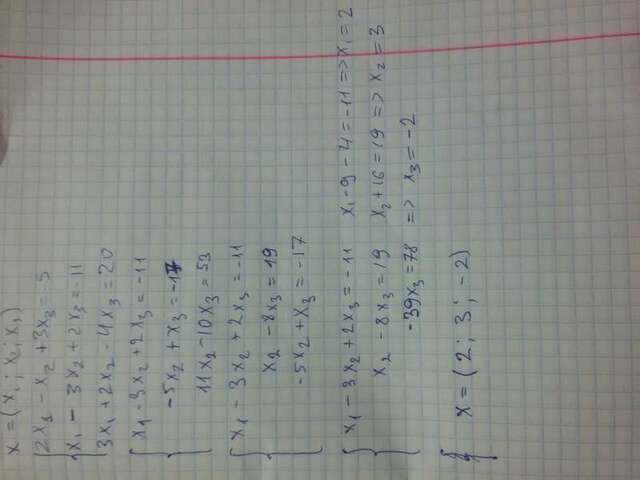 x = (x₁ ; x₂ ; x₃)
2x₁ - x₂ + 3x₃ = -5
x₁ - 3x₂ + 2x₃ = -11
3x₁ + 2x₂ - 4x₃ = 20
x₁ - 3x₂ + 2x₃ = -11
-5x₂ + x₃ = -17
11x₂ - 10x₃ = 53
x₁ - 3x₂ + 2x₃ = -11
x₂ - 8x₃ = 19
-5x₂ + x₃ = -17
x₁ - 3x₂ + 2x₃ = -11 x₁ - 9 - 4 = -11 => x₁ = 2
x₂ - 8x₃ = 19 x₂ + 16 = 19 => x₂ = 3
-39x₃ = 78 => x₃ = -2
x = (2 ; 3 ; -2)